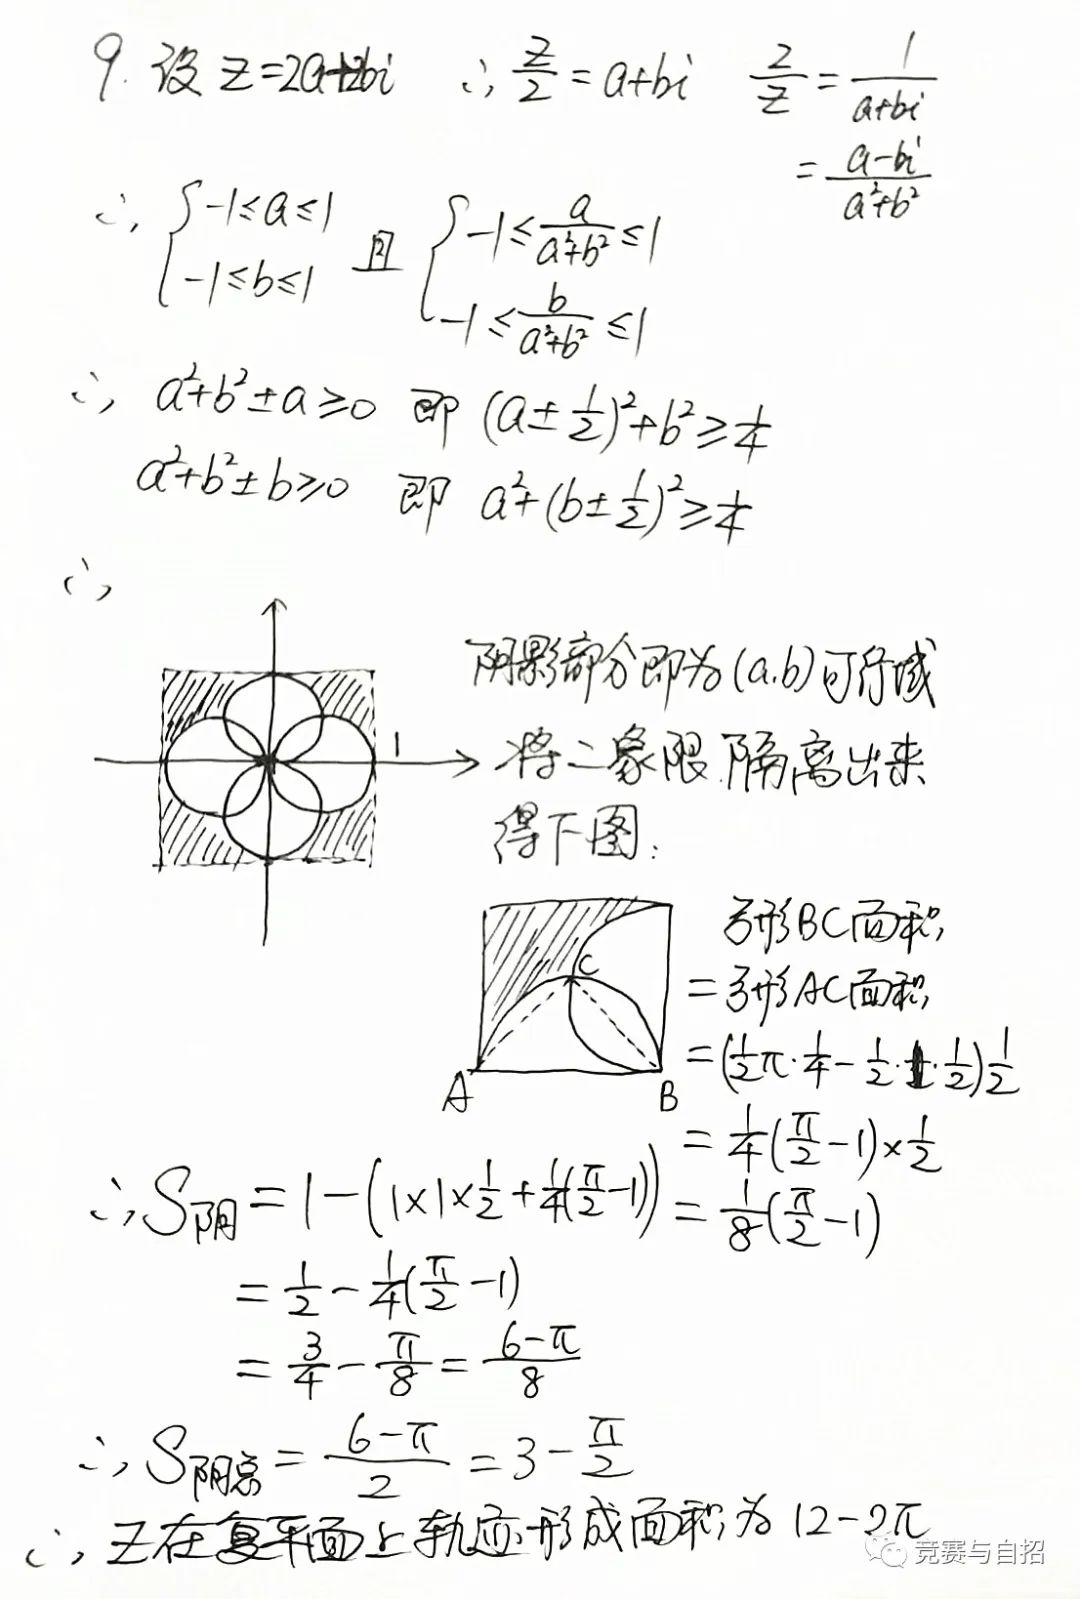 9. 设 z=2a+2bi ∴ z/2 = a+bi 2/z = 1/(a+bi)
= (a-bi)/(a²+b²)
∴ { -1≤a≤1 -1≤b≤1 且 { -1≤ a/(a²+b²) ≤1 -1≤ b/(a²+b²) ≤1
∴ a²+b²±a≥0 即 (a±1/2)²+b²≥1/4
a²+b²±b≥0 即 a²+(b±1/2)²≥1/4
∴
1
阴影部分即为(a,b)可行域
将二象限隔离出来
得下图:
A B C
弓形BC面积
=弓形AC面积
=(1/2π·1/4-1/2·1·1/2)1/2
=1/4(π/2-1)×1/2
=1/8(π/2-1)
∴S阴=1-(1×1×1/2+1/4(π/2-1))
=1/2-1/4(π/2-1)
=3/4-π/8=(6-π)/8
∴S阴总=(6-π)/2=3-π/2
∴z在复平面上轨迹形成面积为12-2π
竞赛与自招